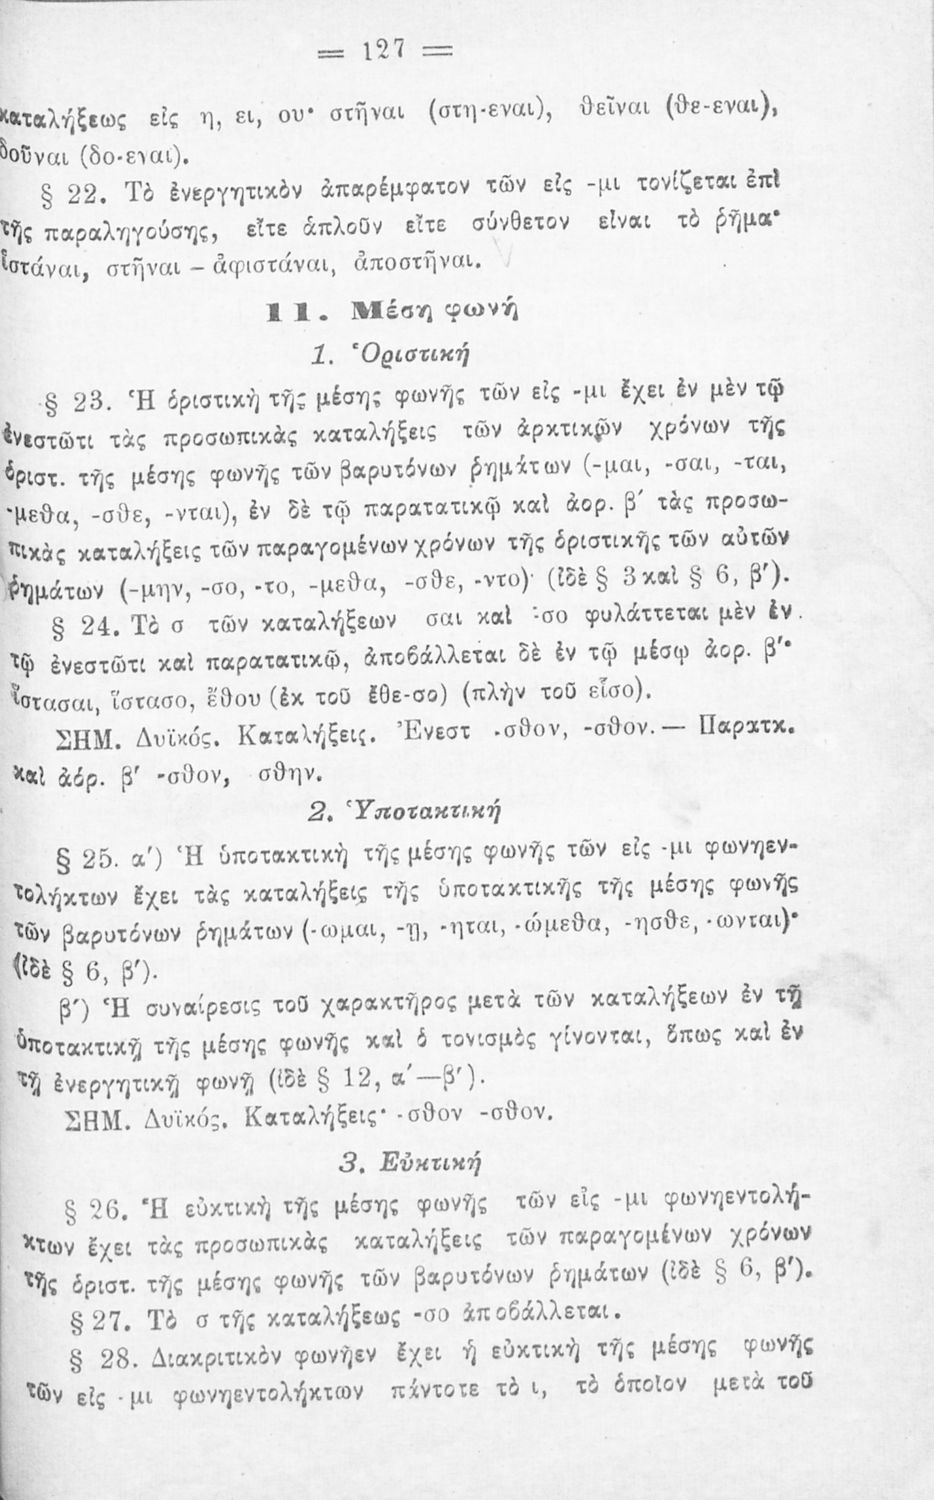 = 127 =
καταλήξεως εἰς η, ει, ου· στῆναι (στη-εναι), θεῖναι (θε-εναι),
δοῦναι (δο-εναι).
§ 22. Τὸ ἐνεργητικὸν ἀπαρέμφατον τῶν εἰς -μι τονίζεται ἐπὶ
τῆς παραληγούσης, εἴτε ἁπλοῦν εἴτε σύνθετον εἶναι τὸ ῥῆμα·
ἱστάναι, στῆναι – ἀφιστάναι, ἀποστῆναι.
11. Μέση φωνή
1. Ὁριστική
§ 23. Ἡ ὁριστικὴ τῆς μέσης φωνῆς τῶν εἰς -μι ἔχει ἐν μὲν τῷ
ἐνεστῶτι τὰς προσωπικὰς καταλήξεις τῶν ἀρκτικῶν χρόνων τῆς
ὁριστ. τῆς μέσης φωνῆς τῶν βαρυτόνων ῥημάτων (-μαι, -σαι, -ται,
-μεθα, -σθε, -νται), ἐν δὲ τῷ παρατατικῷ καὶ ἀορ. β΄ τὰς προσω-
πικὰς καταλήξεις τῶν παραγομένων χρόνων τῆς ὁριστικῆς τῶν αὐτῶν
ῥημάτων (-μην, -σο, -το, -μεθα, -σθε, -ντο)· (ἰδὲ § 3 καὶ § 6, β΄).
§ 24. Τὸ σ τῶν καταλήξεων σαι καὶ -σο φυλάττεται μὲν ἐν
τῷ ἐνεστῶτι καὶ παρατατικῷ, ἀποβάλλεται δὲ ἐν τῷ μέσῳ ἀορ. β΄·
ἵστασαι, ἵστασο, ἔθου (ἐκ τοῦ ἔθε-σο) (πλὴν τοῦ εἷσο).
ΣΗΜ. Δυϊκός. Καταλήξεις. Ἐνεστ -σθον, -σθον. — Παρατκ.
καὶ ἀόρ. β΄ -σθον, σθην.
2. Ὑποτακτική
§ 25. α΄) Ἡ ὑποτακτικὴ τῆς μέσης φωνῆς τῶν εἰς -μι φωνηεν-
τολήκτων ἔχει τὰς καταλήξεις τῆς ὑποτακτικῆς τῆς μέσης φωνῆς
τῶν βαρυτόνων ῥημάτων (-ωμαι, -ῃ, -ηται, -ώμεθα, -ησθε, -ωνται)·
(ἰδὲ § 6, β΄).
β΄) Ἡ συναίρεσις τοῦ χαρακτῆρος μετὰ τῶν καταλήξεων ἐν τῇ
ὑποτακτικῇ τῆς μέσης φωνῆς καὶ ὁ τονισμὸς γίνονται, ὅπως καὶ ἐν
τῇ ἐνεργητικῇ φωνῇ (ἰδὲ § 12, α΄—β΄).
ΣΗΜ. Δυϊκός. Καταλήξεις· -σθον -σθον.
3. Εὐκτική
§ 26. Ἡ εὐκτικὴ τῆς μέσης φωνῆς τῶν εἰς -μι φωνηεντολή-
κτων ἔχει τὰς προσωπικὰς καταλήξεις τῶν παραγομένων χρόνων
τῆς ὁριστ. τῆς μέσης φωνῆς τῶν βαρυτόνων ῥημάτων (ἰδὲ § 6, β΄).
§ 27. Τὸ σ τῆς καταλήξεως -σο ἀποβάλλεται.
§ 28. Διακριτικὸν φωνῆεν ἔχει ἡ εὐκτικὴ τῆς μέσης φωνῆς
τῶν εἰς -μι φωνηεντολήκτων πάντοτε τὸ ι, τὸ ὁποῖον μετὰ τοῦ